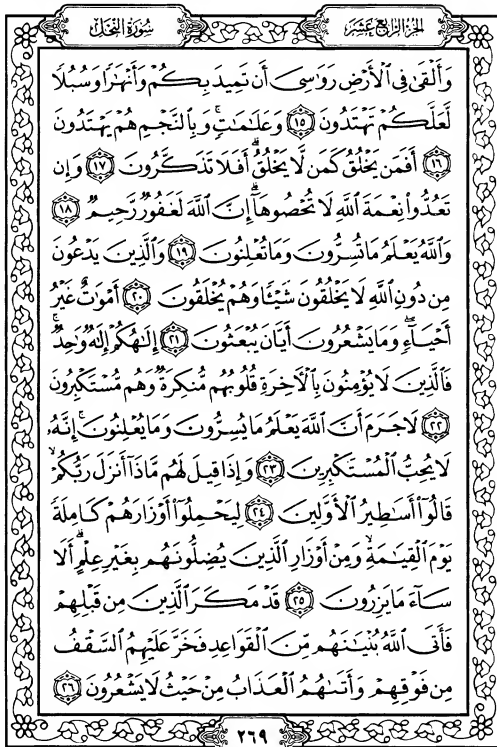 الجزء الرابع عشر
سورة النحل
وَأَلْقَىٰ فِي ٱلْأَرْضِ رَوَٰسِيَ أَن تَمِيدَ بِكُمْ وَأَنْهَٰرًا وَسُبُلًا
لَّعَلَّكُمْ تَهْتَدُونَ ١٥ وَعَلَٰمَٰتٍۚ وَبِٱلنَّجْمِ هُمْ يَهْتَدُونَ
١٦ أَفَمَن يَخْلُقُ كَمَن لَّا يَخْلُقُۗ أَفَلَا تَذَكَّرُونَ ١٧ وَإِن
تَعُدُّوا۟ نِعْمَةَ ٱللَّهِ لَا تُحْصُوهَآۗ إِنَّ ٱللَّهَ لَغَفُورٌ رَّحِيمٌ ١٨
وَٱللَّهُ يَعْلَمُ مَا تُسِرُّونَ وَمَا تُعْلِنُونَ ١٩ وَٱلَّذِينَ يَدْعُونَ
مِن دُونِ ٱللَّهِ لَا يَخْلُقُونَ شَيْـًٔا وَهُمْ يُخْلَقُونَ ٢٠ أَمْوَٰتٌ غَيْرُ
أَحْيَآءٍۖ وَمَا يَشْعُرُونَ أَيَّانَ يُبْعَثُونَ ٢١ إِلَٰهُكُمْ إِلَٰهٌ وَٰحِدٌۚ
فَٱلَّذِينَ لَا يُؤْمِنُونَ بِٱلْءَاخِرَةِ قُلُوبُهُم مُّنكِرَةٌ وَهُم مُّسْتَكْبِرُونَ
٢٢ لَا جَرَمَ أَنَّ ٱللَّهَ يَعْلَمُ مَا يُسِرُّونَ وَمَا يُعْلِنُونَۚ إِنَّهُۥ
لَا يُحِبُّ ٱلْمُسْتَكْبِرِينَ ٢٣ وَإِذَا قِيلَ لَهُم مَّاذَآ أَنزَلَ رَبُّكُمْۙ
قَالُوٓا۟ أَسَٰطِيرُ ٱلْأَوَّلِينَ ٢٤ لِيَحْمِلُوٓا۟ أَوْزَارَهُمْ كَامِلَةً
يَوْمَ ٱلْقِيَٰمَةِۙ وَمِنْ أَوْزَارِ ٱلَّذِينَ يُضِلُّونَهُم بِغَيْرِ عِلْمٍۗ أَلَا
سَآءَ مَا يَزِرُونَ ٢٥ قَدْ مَكَرَ ٱلَّذِينَ مِن قَبْلِهِمْ
فَأَتَى ٱللَّهُ بُنْيَٰنَهُم مِّنَ ٱلْقَوَاعِدِ فَخَرَّ عَلَيْهِمُ ٱلسَّقْفُ
مِن فَوْقِهِمْ وَأَتَىٰهُمُ ٱلْعَذَابُ مِنْ حَيْثُ لَا يَشْعُرُونَ ٢٦
٢٦٩